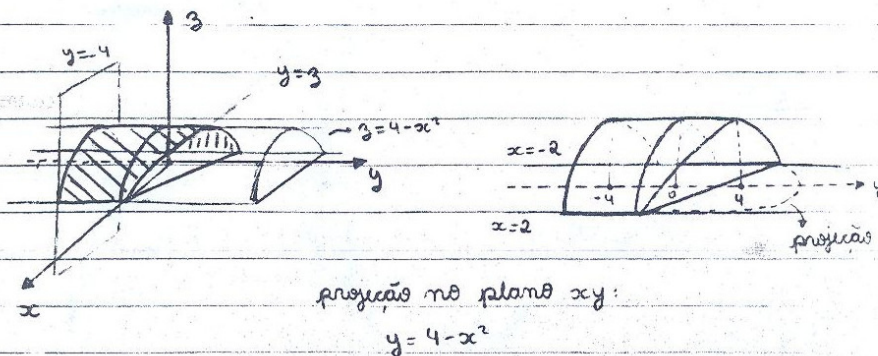 z
y=-4
y=z
z=4-x²
y
x
x=-2
-4
0
4
y
x=2
projeção
projeção no plano xy:
y = 4-x²